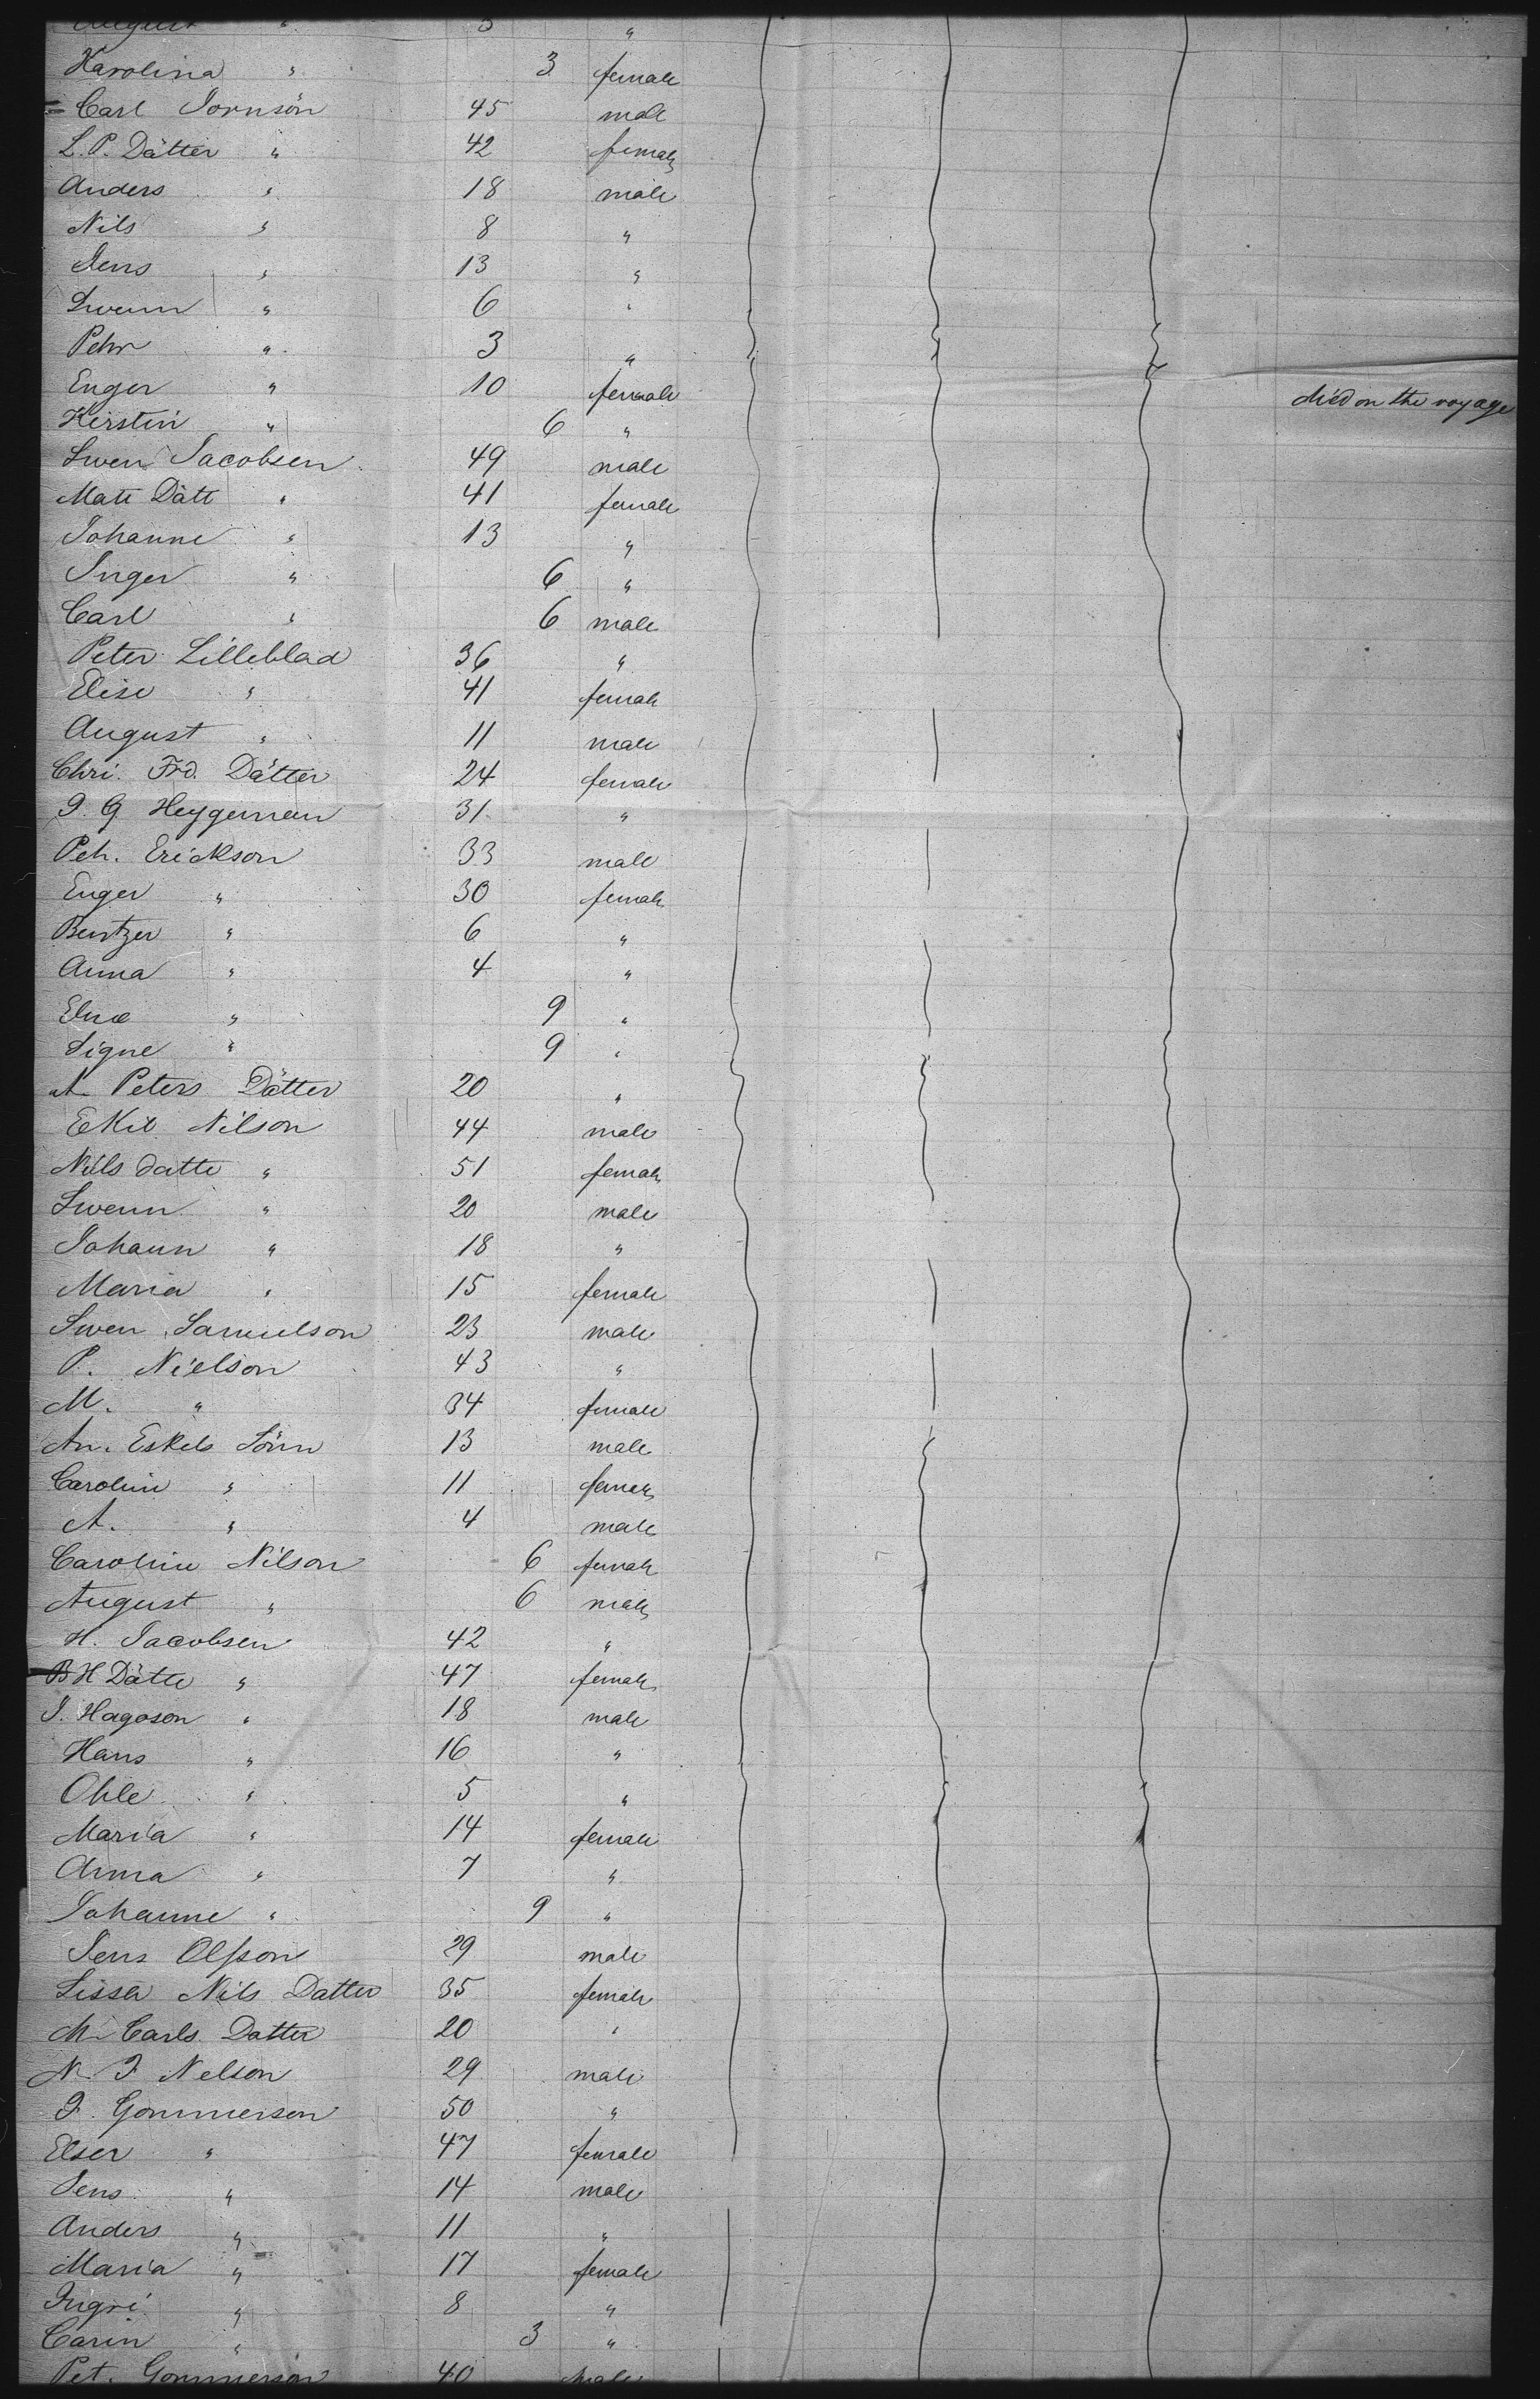 August " 3 "
Karolina " 3 female
Carl Jornsön 45 male
L. P. Dätter " 42 female
Anders " 18 male
Nils " 8 "
Jens " 13 "
Swenn " 6 "
Pehr " 3 "
Enger " 10 female died on the voyage
Kirstin " 6 "
Swen Jacobsen 49 male
Matt Dätt " 41 female
Johanne " 13 "
Inger " 6 "
Carl " 6 male
Peter Lilleblad 36 "
Elise " 41 female
August " 11 male
Chri. Frd. Dätter 24 female
I. G Heygeman 31 "
Peh. Erickson 33 male
Enger " 30 female
Bentzer " 6 "
Anna " 4 "
Elna " 9 "
Signe " 9 "
A Peters Dätter 20 "
Ekil Nilson 44 male
Nils datte " 51 female
Swenn " 20 male
Johann " 18 "
Maria " 15 female
Swen Samuelson 23 male
P. Nielson 43 "
M. " 34 female
An. Eskels Sönn 13 male
Carolin " 11 female
A. " 4 male
Caroline Nilson 6 female
August " 6 male
H. Jacobsen 42 "
B H Dätte " 47 female
J. Hagoson " 18 male
Hans " 16 "
Ohle " 5 "
Maria " 14 female
Anna " 7 "
Johanne " 9 "
Jens Olsson 29 male
Lissa Nils Datter 35 female
M Carls Datter 20 "
N. I Nelson 29 male
I. Gommerson 50 "
Elser " 47 female
Jens " 14 male
Anders " 11 "
Maria " 17 female
Ingri " 8 "
Carin " 3 "
Pet. Gommerson 40 male